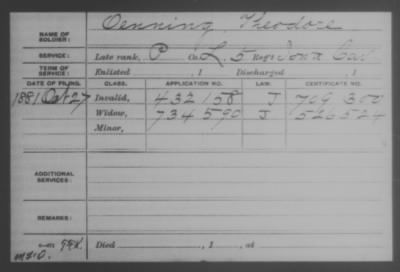 NAME OF SOLDIER: Oenning, Theodore
SERVICE: Late rank, P Co. L, 5 Reg't Iowa Cav
TERM OF SERVICE: Enlisted , 1 Discharged , 1
DATE OF FILING. CLASS. APPLICATION NO. LAW. CERTIFICATE NO.
1881 Oct 27 Invalid, 432 158 J 709 300
Widow, 734 590 J 526 524
Minor,
ADDITIONAL SERVICES:
REMARKS:
Died , 1 , at